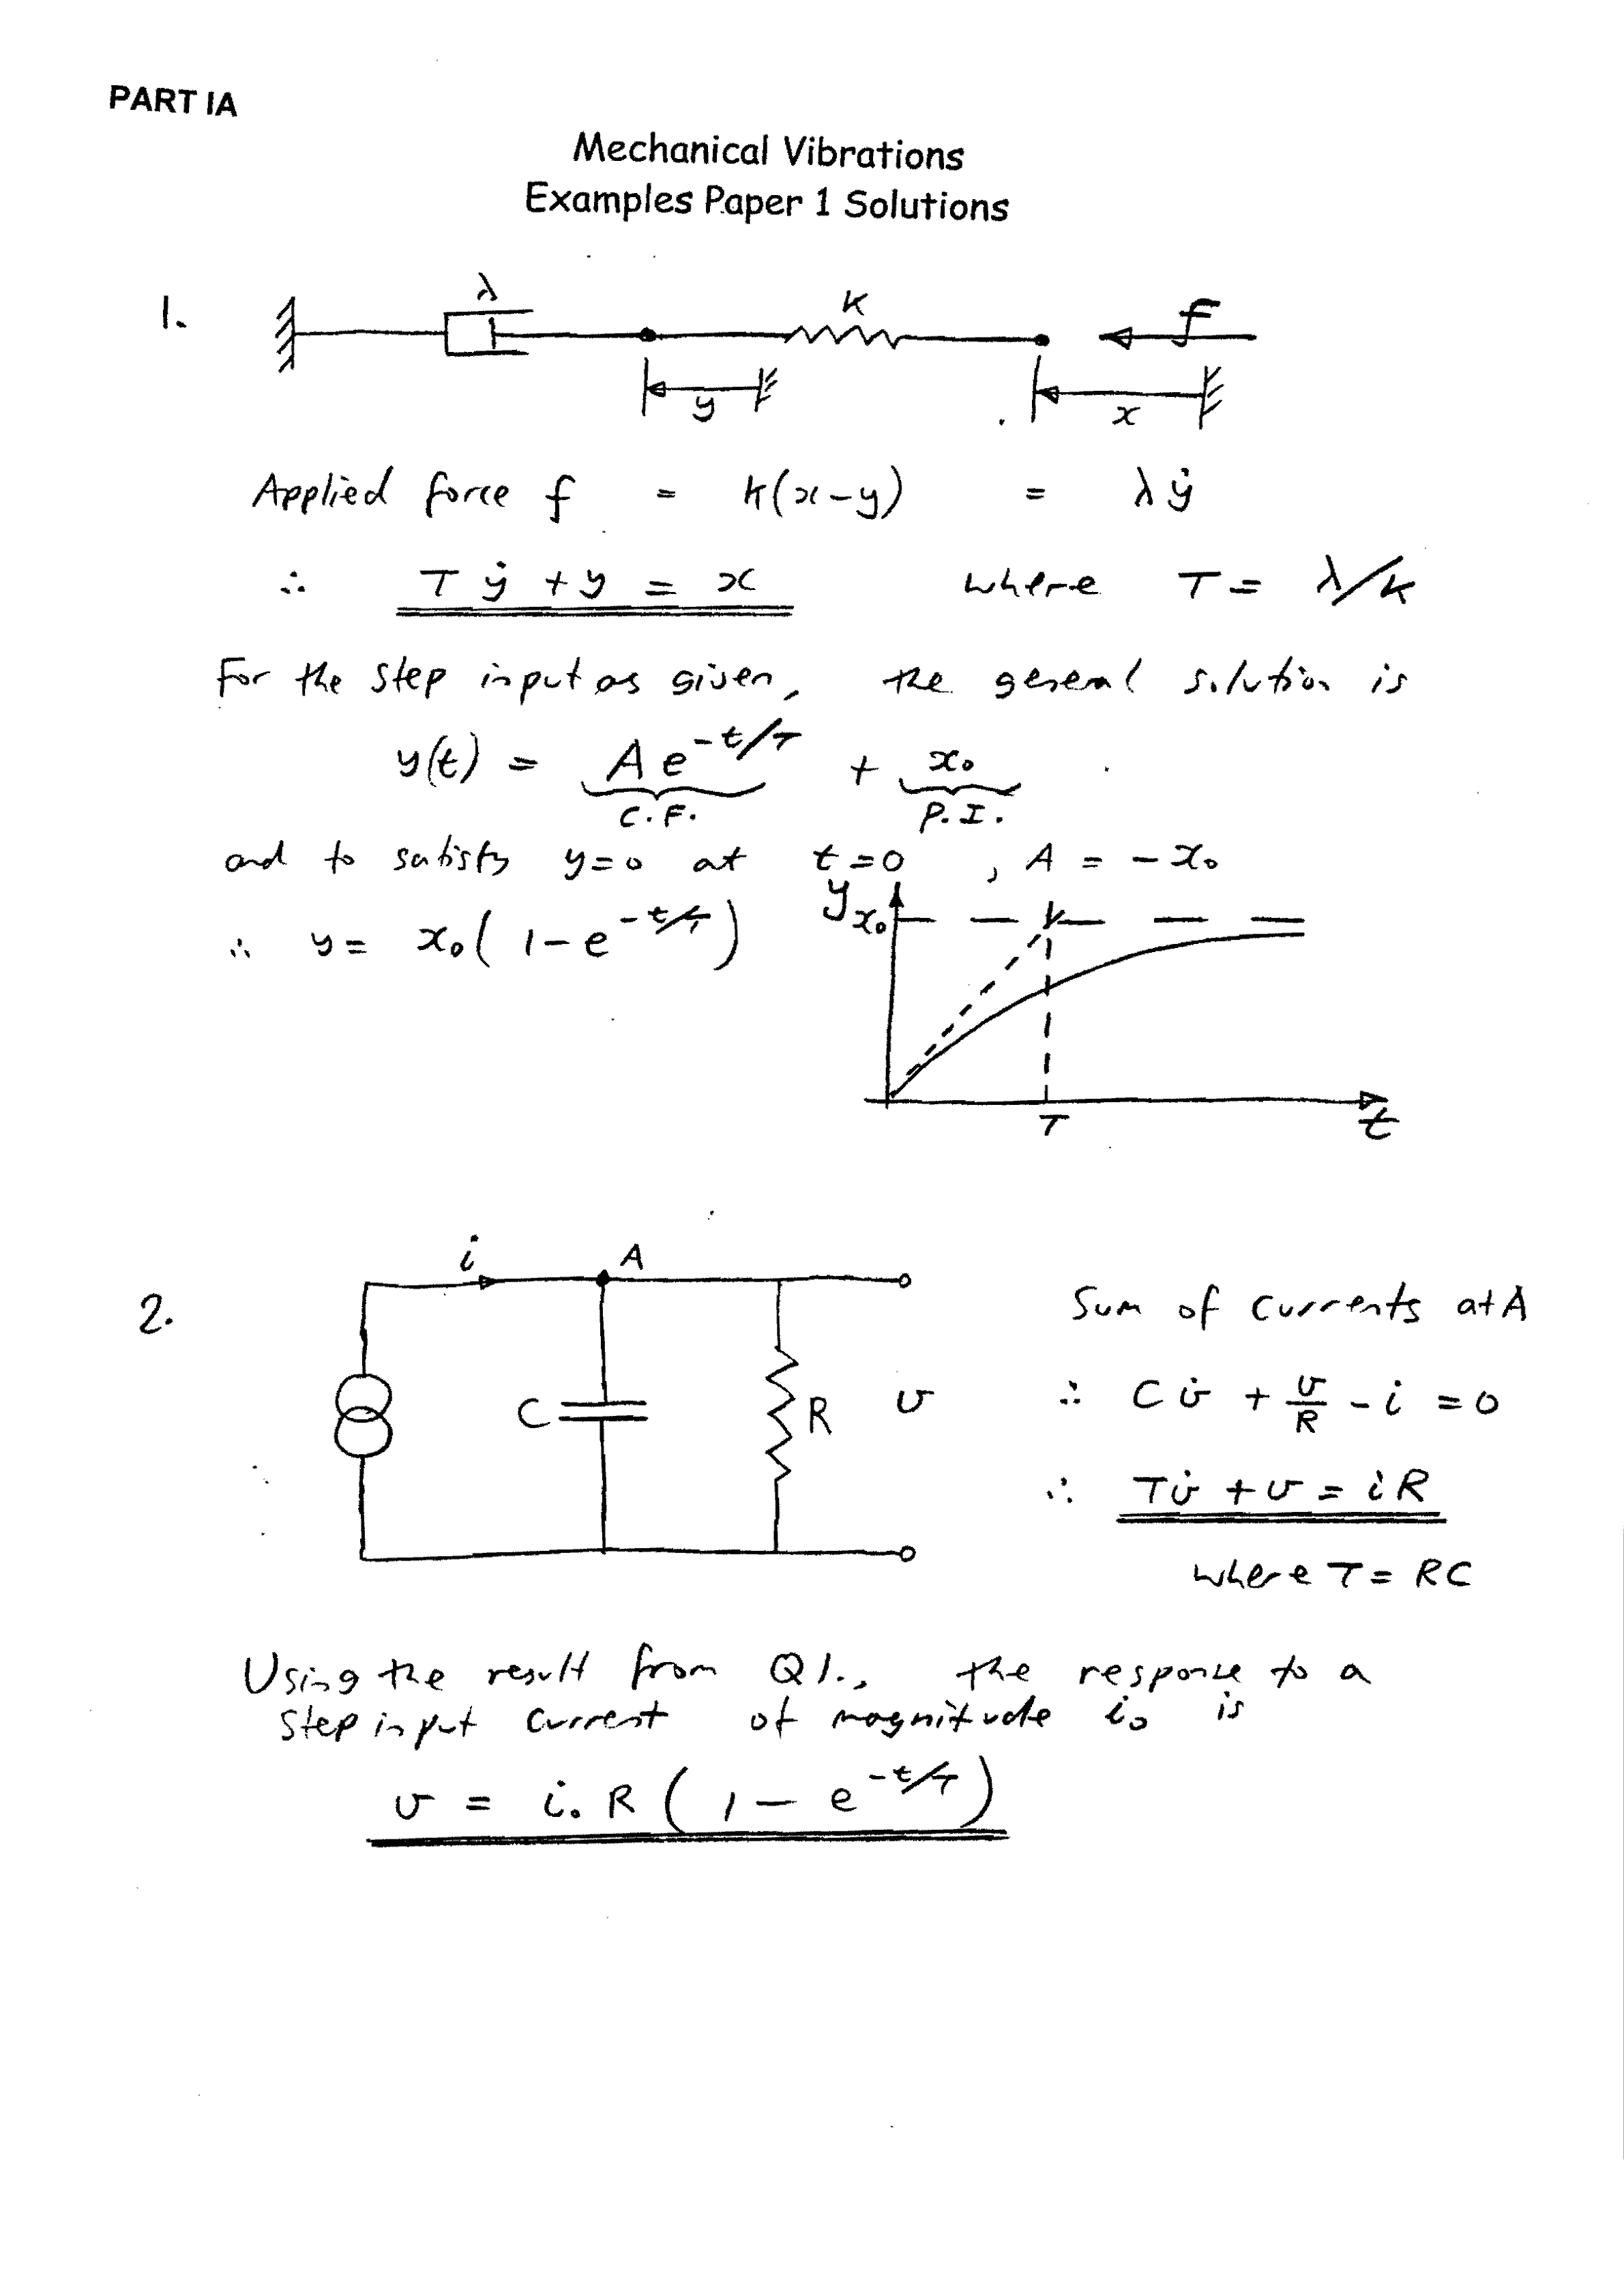 PART IA
Mechanical Vibrations
Examples Paper 1 Solutions
1.
λ
k
f
y
x
Applied force f = k(x-y) = λẏ
∴ Tẏ + y = x where T = λ/k
For the step input as given, the general solution is
y(t) = Ae^{-t/T} + x₀
C.F. P.I.
and to satisfy y=0 at t=0, A = -x₀
∴ y = x₀(1-e^{-t/T})
y
x₀
T
t
2.
i
A
C
R
v
Sum of currents at A
∴ Cv̇ + v/R - i = 0
∴ Tv̇ + v = iR
where T = RC
Using the result from Q1., the response to a
step input current of magnitude i₀ is
v = i₀R(1 - e^{-t/T})